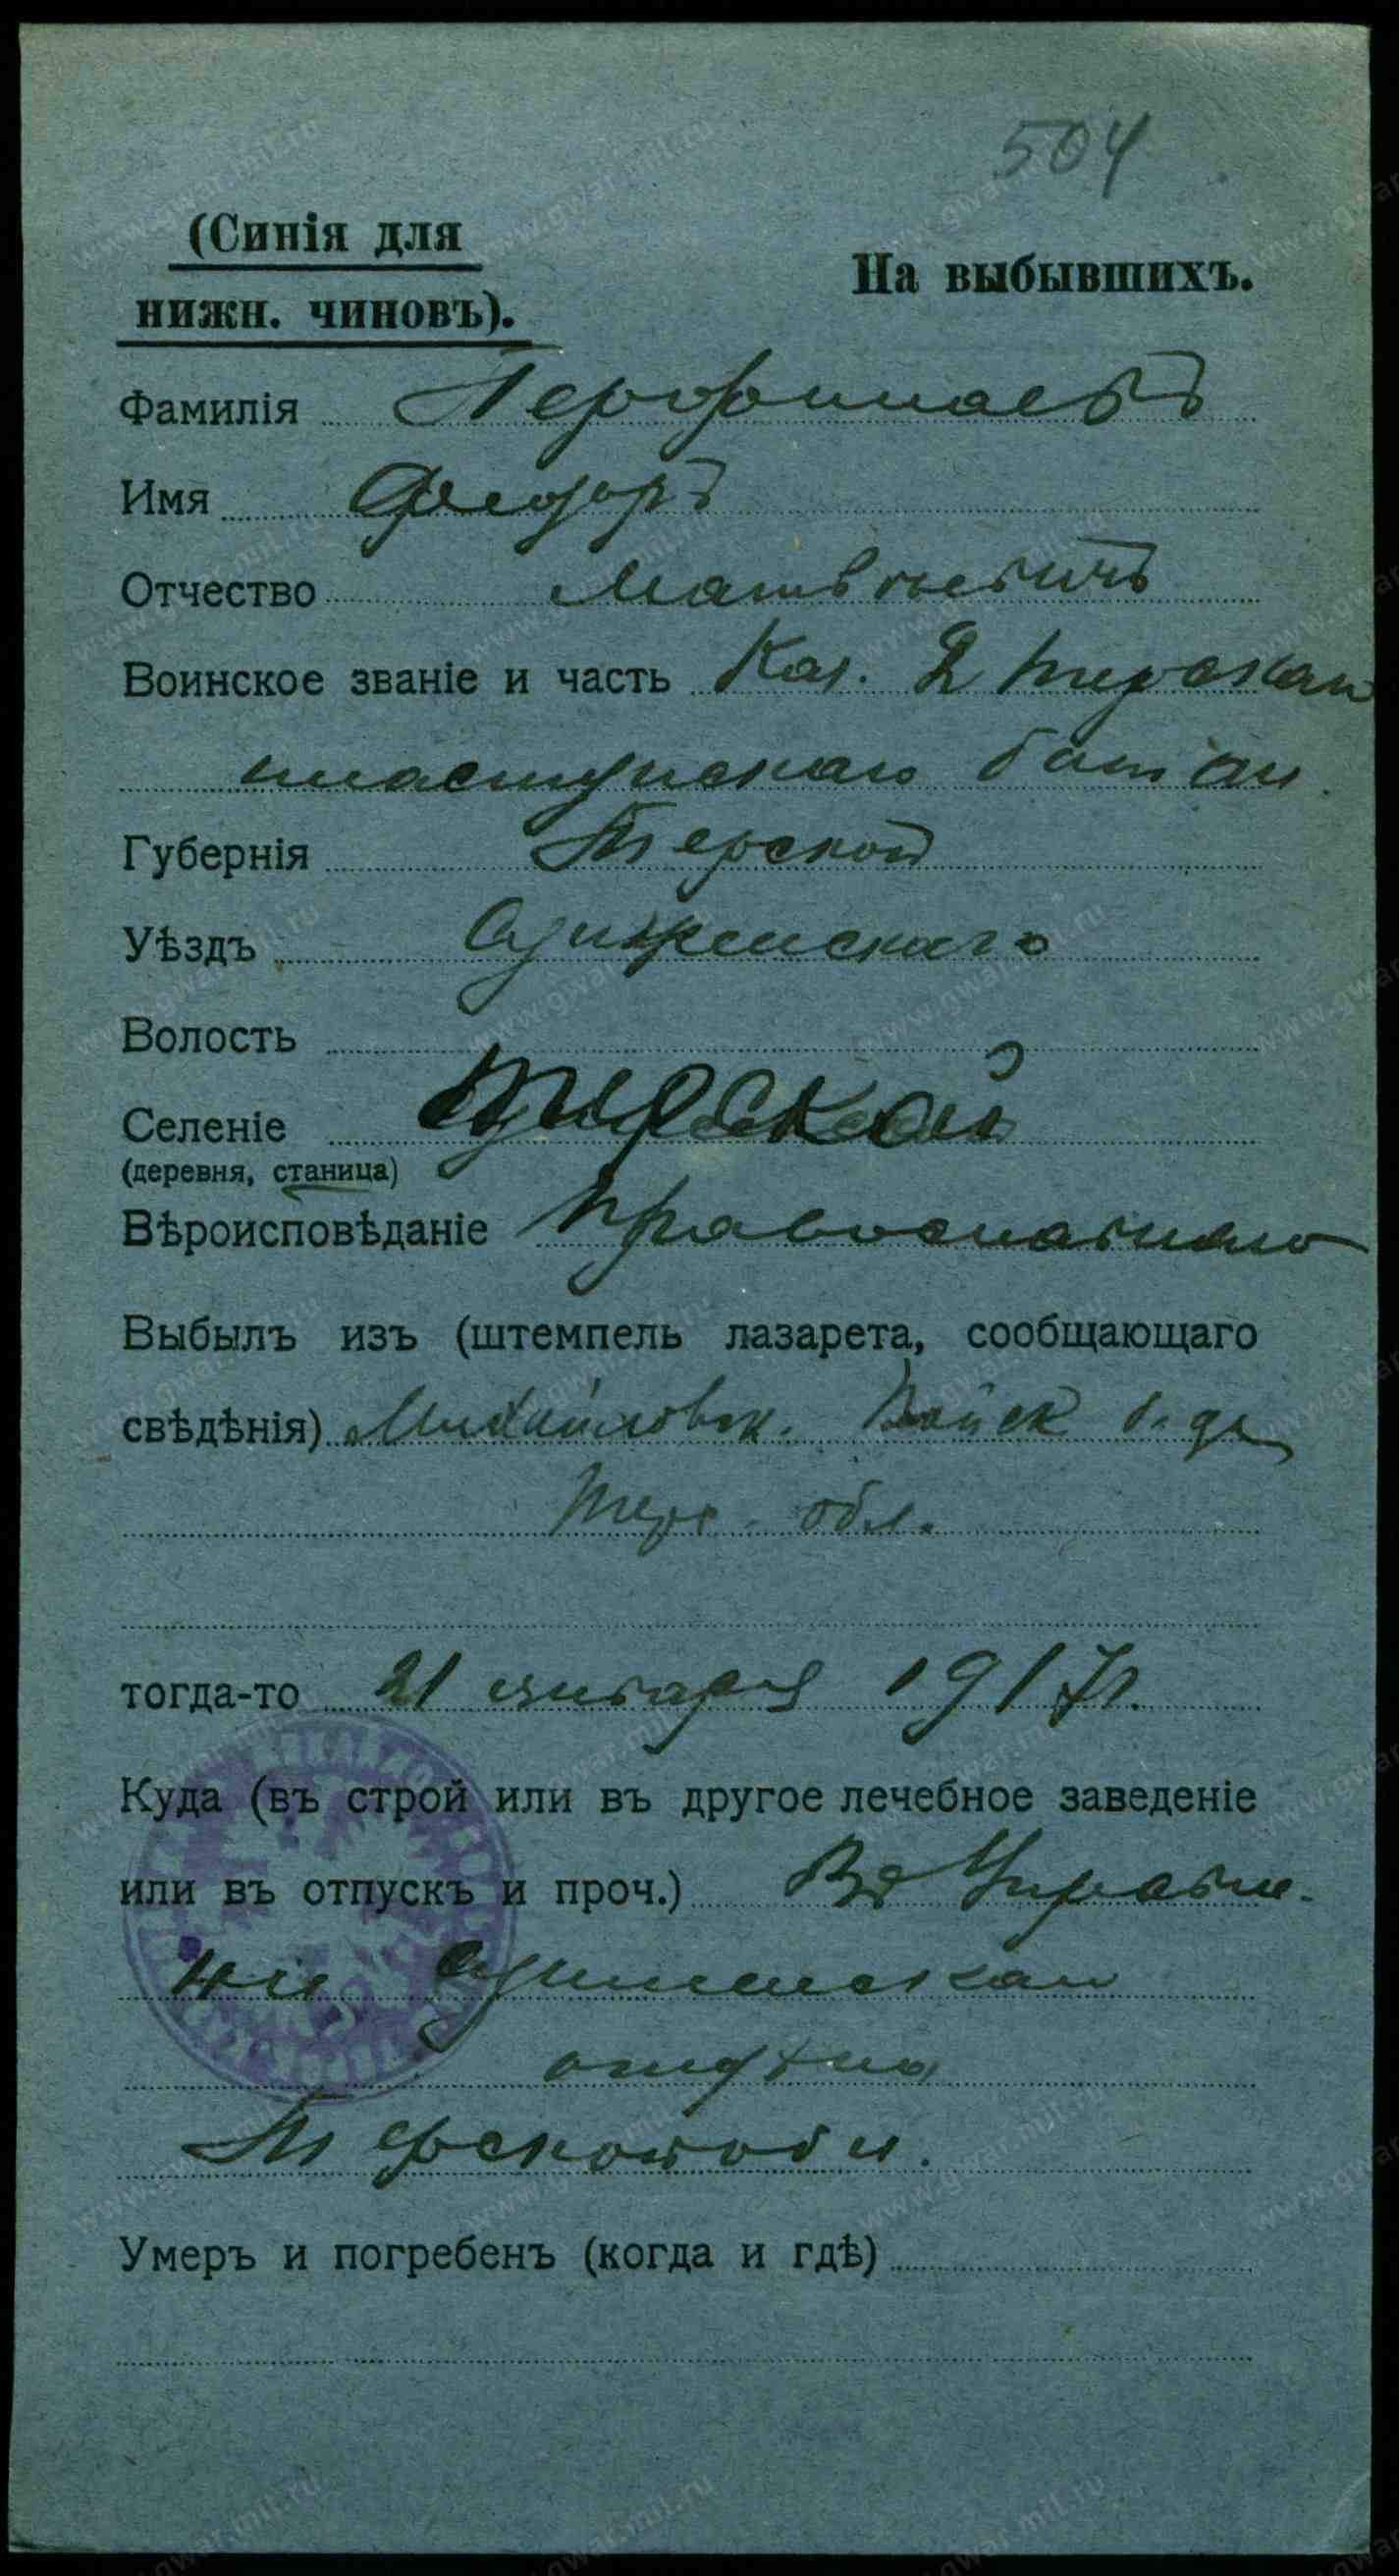 504
(Синія для
нижн. чиновъ).
На выбывшихъ.
Фамилія
Имя Федоръ
Отчество Матвѣевичъ
Воинское званіе и часть Каз. 2 Терскаго
пластунскаго батал
Губернія Терской
Уѣздъ Сунженскаго
Волость
Селеніе Терской
(деревня, станица)
Вѣроисповѣданіе Православнаго
Выбылъ изъ (штемпель лазарета, сообщающаго
свѣдѣнія) Михайловск. Войск
Терс. обл.
тогда-то 21 января 1917 г.
Куда (въ строй или въ другое лечебное заведеніе
или въ отпускъ и проч.) Въ Управле-
ніе Сунженскаго
отдѣла
Терской обл.
Умеръ и погребенъ (когда и гдѣ)